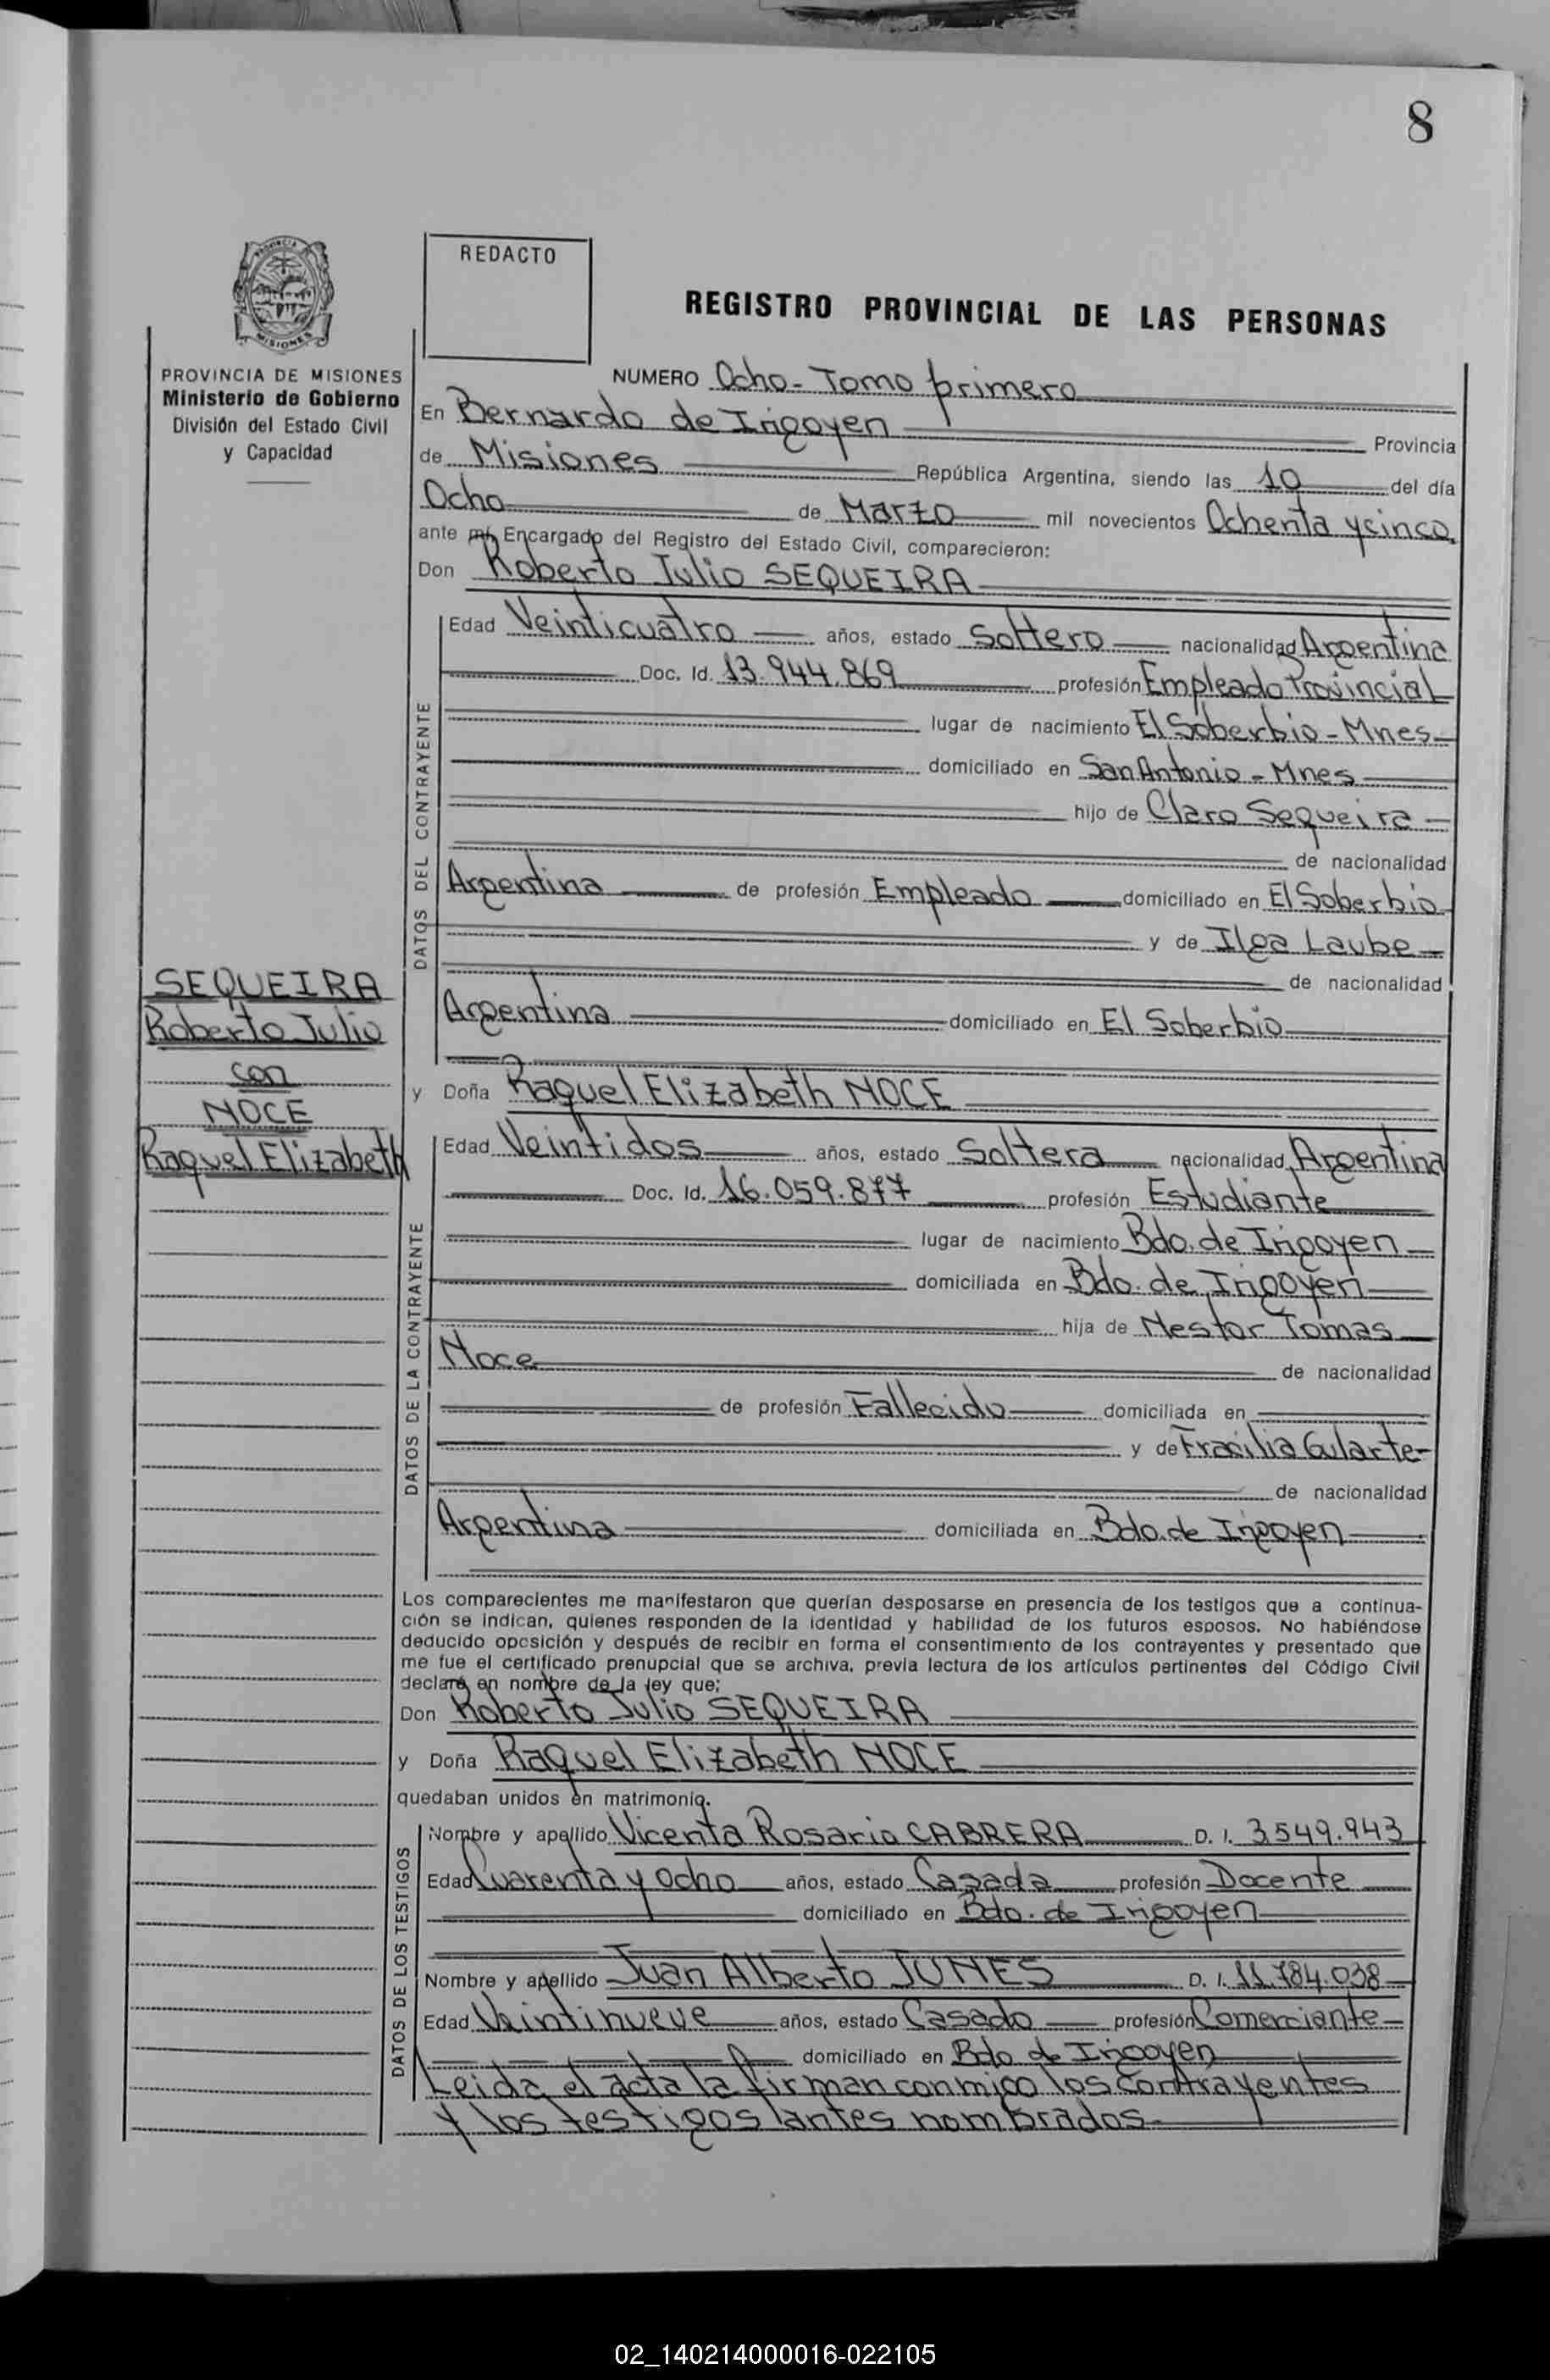 8
REDACTO
REGISTRO PROVINCIAL DE LAS PERSONAS
PROVINCIA MISIONES
PROVINCIA DE MISIONES
Ministerio de Gobierno
División del Estado Civil
y Capacidad
NUMERO Ocho - Tomo primero
En Bernardo de Irigoyen Provincia
de Misiones República Argentina, siendo las 10 del día
Ocho de Marzo mil novecientos Ochenta y cinco
ante mí, Encargado del Registro del Estado Civil, comparecieron:
Don Roberto Julio SEQUEIRA
DATOS DEL CONTRAYENTE
Edad Veinticuatro años, estado Soltero nacionalidad Argentina
Doc. Id. 13.944.869 profesión Empleado Provincial
lugar de nacimiento El Soberbio - Mnes
domiciliado en San Antonio - Mnes
hijo de Claro Sequeira
de nacionalidad
Argentina de profesión Empleado domiciliado en El Soberbio
y de Ilga Laube
de nacionalidad
Argentina domiciliado en El Soberbio
SEQUEIRA
Roberto Julio
con
NOCE
Raquel Elizabeth
y Doña Raquel Elizabeth NOCE
DATOS DE LA CONTRAYENTE
Edad Veintidos años, estado Soltera nacionalidad Argentina
Doc. Id. 16.059.877 profesión Estudiante
lugar de nacimiento Bdo. de Irigoyen
domiciliada en Bdo. de Irigoyen
hija de Nestor Tomas
Noce de nacionalidad
de profesión Fallecido domiciliada en
y de Gularte
de nacionalidad
Argentina domiciliada en Bdo. de Irigoyen
Los comparecientes me manifestaron que querían desposarse en presencia de los testigos que a continua-
ción se indican, quienes responden de la identidad y habilidad de los futuros esposos. No habiéndose
deducido oposición y después de recibir en forma el consentimiento de los contrayentes y presentado que
me fue el certificado prenupcial que se archiva, previa lectura de los artículos pertinentes del Código Civil
declaré en nombre de la ley que;
Don Roberto Julio SEQUEIRA
y Doña Raquel Elizabeth NOCE
quedaban unidos en matrimonio.
DATOS DE LOS TESTIGOS
Nombre y apellido Vicenta Rosario CABRERA D. I. 3549.943
Edad Cuarenta y ocho años, estado Casada profesión Docente
domiciliado en Bdo. de Irigoyen
Nombre y apellido Juan Alberto JUNES D. I. 11.784.038
Edad Veintinueve años, estado Casado profesión Comerciante
domiciliado en Bdo de Irigoyen
Leida el acta la firman conmigo los contrayentes
y los testigos antes nombrados
02_140214000016-022105